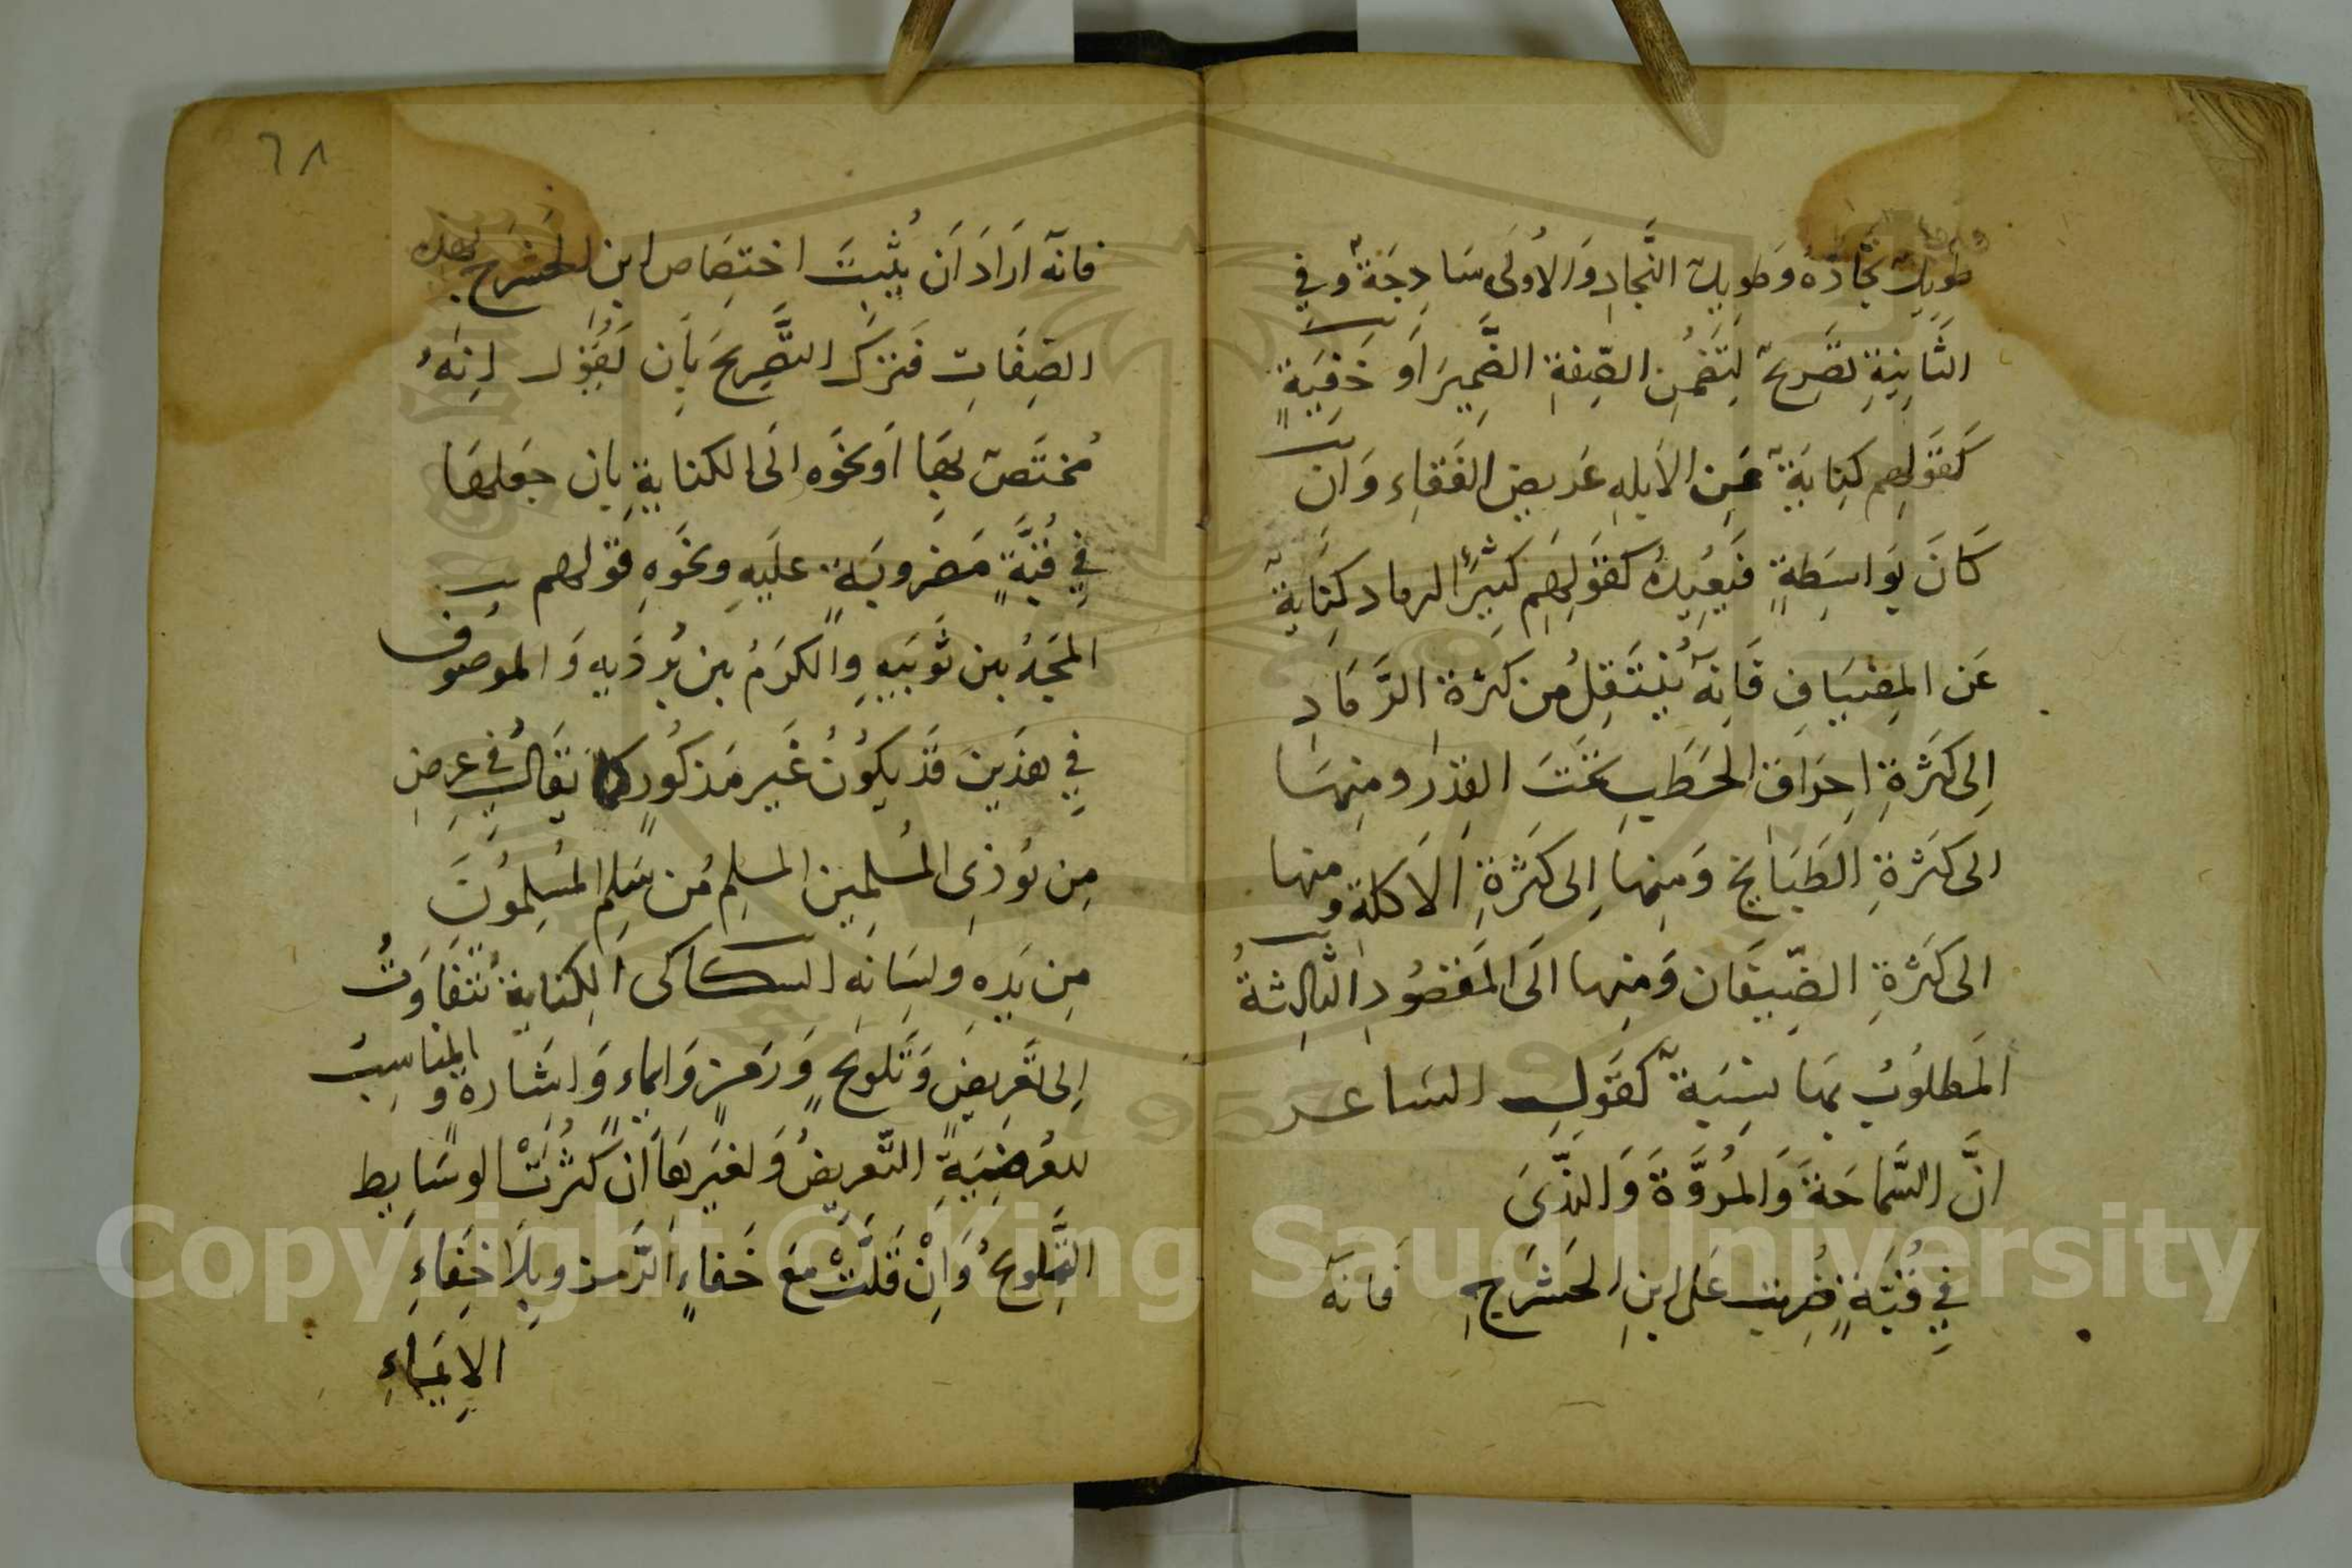 طويل نجاده وطويل النّجاد والاولى سَاذجَةٌ وفي
الثَانِيَةِ تصريحٌ لتضمن الصّفةِ الضّمير أو خَفِيَّةٍ
كقَولهم كنايَةً عَن الابلهِ عَريض القَفَاء وَان
كَانَ بِوَاسِطَةٍ فَبَعيدة كقَولِهم كثيرُ الرماد كِنَايةً
عَن المِضْيَافِ فَانّهُ يُنتَقلُ من كثرة الرَّمَادِ
اِلى كثرَةِ احرَاق الحَطَبِ تَحتَ القِدر ومنها
الى كثرةِ الطَبَايخ وَمِنها اِلى كَثرَةِ الاكلة ومنها
الى كثرَةِ الضّيفَان وَمِنها الَى المَقصُودِ الثَّالِثَةُ
المَطلوُبُ بهَا نِسبَةٌ كقَولِ الشاعر
انَّ السَّمَاحَةَ وَالمُرُوَّةَ وَالنّدَى
في قُبّةٍ ضُرِبت عَلى ابنِ الحَشْرَجِ
فَانّهُ
٦٨
فانّه ارَادَ اَن يُثْبِتَ اختِصَاص ابن الحَشرَج بهذه
الصِفَاتِ فَترَكَ التّصريحَ بِاَن يَقُول اِنّهُ
مُختَصّ بهَا اَو نحوَه الَى الكنايةِ بان جعلهَا
في قُبَّةٍ مَضرُوبَةٍ عليَهِ ونحَوَهِ قَولهم
المَجدُ بين ثَوبَيهِ وَالكَرَمُ بين بُردَيهِ وَالموصوف
في هذَينِ قَد يكوُنُ غَير مَذكُورٍ كما يقَال في عرضِ
مِن يُوذى المُسلمِين المسلِم مُن سَلِم المُسلِمُونَ
مِن يَدِه ولسَانه السكاكى الكِنايةُ تَتفَاوَتُ
اِلى تَعريضٍ وَتلويحٍ وَرَمزٍ وَايماءٍ وَاِشَارة والمناسِبُ
للعُرضِيَةِ التّعريضُ وَلغَيرهَا اَن كثُرتْ الوسَايط
التّلويحُ وَاِنْ قَلَّتْ مَعَ خَفاءٍ الرَّمز وبِلَا خِفَاءِ
الاِيمَاءِ